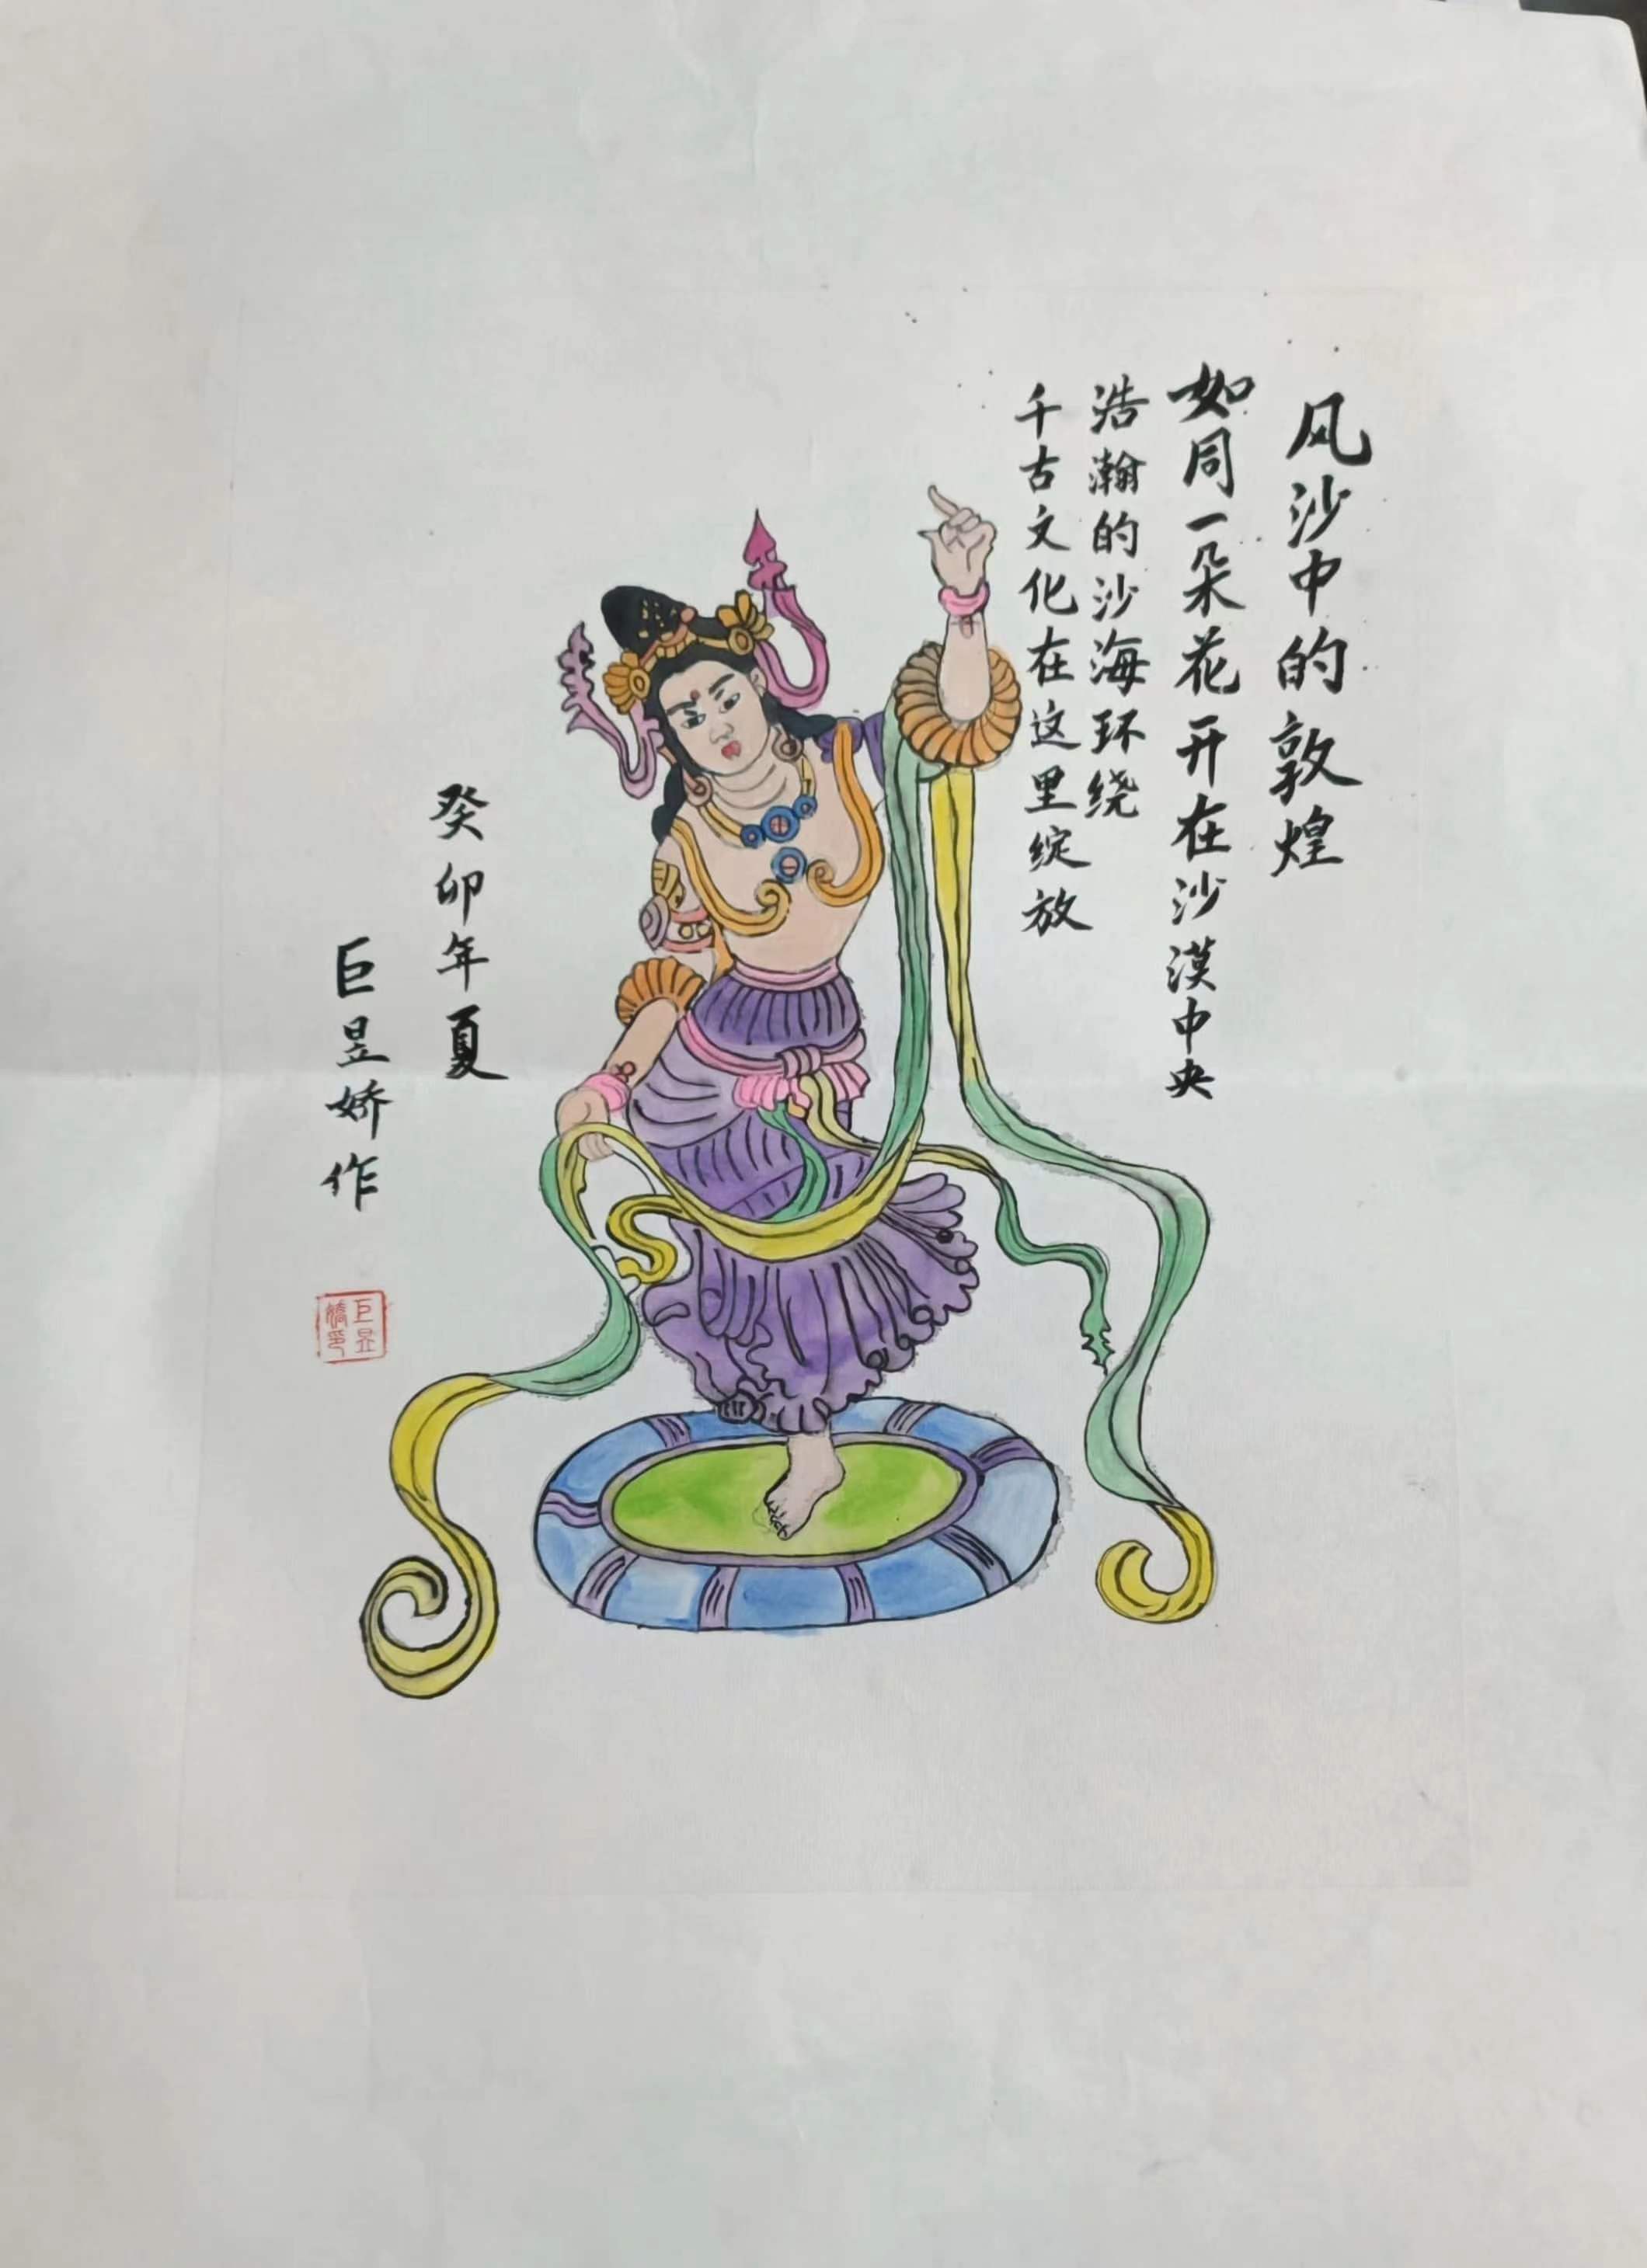 风沙中的敦煌
如同一朵花开在沙漠中央
浩瀚的沙海环绕
千古文化在这里绽放
癸卯年夏
巨昱娇作
巨昱
娇印